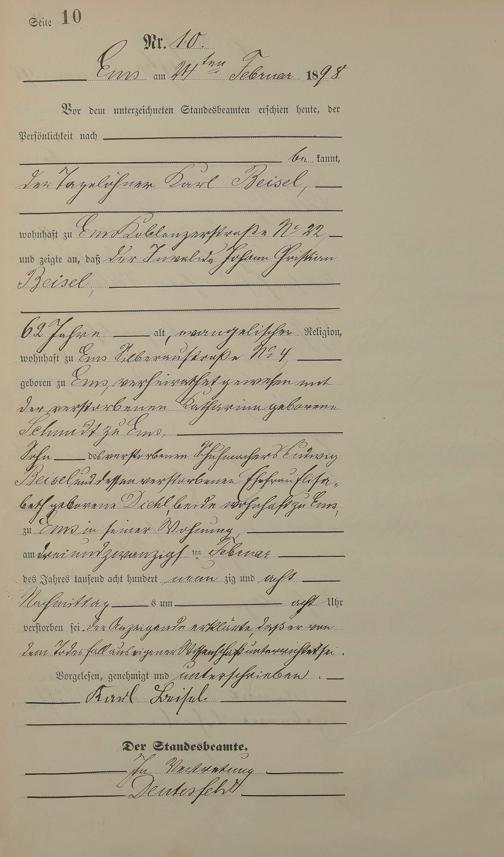 Seite 10
Nr. 10.
Ems am 24ten Februar 1898
Vor dem unterzeichneten Standesbeamten erschien heute, der
Persönlichkeit nach
be kannt,
der Tagelöhner Karl Beisel,
wohnhaft zu Ems Koblenzerstraße No 22
und zeigte an, daß der Invalide Johann Christian
Beisel,
62 Jahre alt, evangelischer Religion,
wohnhaft zu Ems Silberaustraße No 4,
geboren zu Ems, verheirathet gewesen mit
der verstorbenen Katharina geborene
Schmidt zu Ems,
Sohn des verstorbenen Schuhmachers Ludwig
Beisel und dessen verstorbenen Ehefrau Elisa-
beth geborene Diehl, beide wohnhaft zu Ems,
zu Ems in seiner Wohnung,
am dreiundzwanzigsten Februar
des Jahres tausend acht hundert neun zig und acht
Nachmittags um acht Uhr
verstorben sei. Der Anzeigende erklärte, daß er von
dem Todesfall aus eigener Wissenschaft unterrichtet sei.
Vorgelesen, genehmigt und unterschrieben.
Karl Beisel.
Der Standesbeamte.
In Vertretung